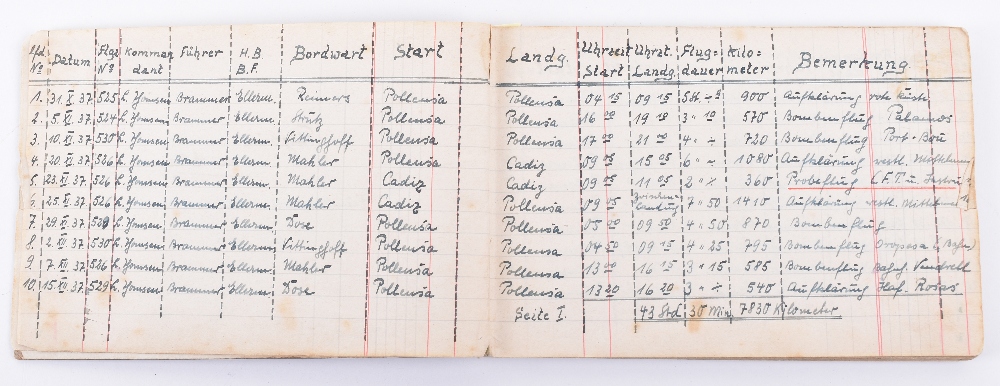 Lfd. Nº Datum Flgz Nº Komman dant Führer H.B. B.F. Bordwart Start Landg. Uhrzeit Start Uhrzt. Landg. Flug= dauer Kilo= meter Bemerkung.
1. 31. X. 37. 525 L. Hansen Brammer Ellerm. Reimers Pollensa Pollensa 04 15 09 15 5 St. 900 Aufklärung rote Küste
2. 5. XI. 37. 524 L. Hansen Brammer Ellerm. Strütz Pollensa Pollensa 16 00 19 10 3 " 10 570 Bombenflug Palamos
3. 10. XI. 37. 530 L. Hansen Brammer Ellerm. Vittinghoff Pollensa Pollensa 17 00 21 00 4 " 720 Bombenflug Port-Bou
4. 20. XI. 37. 526 L. Hansen Brammer Ellerm. Mahler Pollensa Cadiz 09 05 15 05 6 " 1080 Aufklärung westl.
5. 23. XI. 37. 526 L. Hansen Brammer Ellerm. Mahler Cadiz Cadiz 09 05 11 05 2 " 360 Probeflug (F.T. u.
6. 25. XI. 37. 526 L. Hansen Brammer Ellerm. Mahler Cadiz Pollensa 09 05 Zwischen landung 7 " 50 1410 Aufklärung westl.
7. 29. XI. 37. 529 L. Hansen Brammer Ellerm. Dose Pollensa Pollensa 05 00 09 50 4 " 50 870 Bombenflug
8. 2. XII. 37. 530 L. Hansen Brammer Ellerm. Vittinghoff Pollensa Pollensa 04 50 09 15 4 " 25 795 Bombenflug Oropesa (Bahn)
9. 7. XII. 37. 526 L. Hansen Brammer Ellerm. Mahler Pollensa Pollensa 13 00 16 15 3 " 15 585 Bombenflug Bahnf. Vendrell
10. 15. XII. 37. 529 L. Hansen Brammer Ellerm. Dose Pollensa Pollensa 13 20 16 20 3 " 540 Aufklärung Haf. Rosas
Seite I. 43 Std. 30 Min. 7830 Kilometer